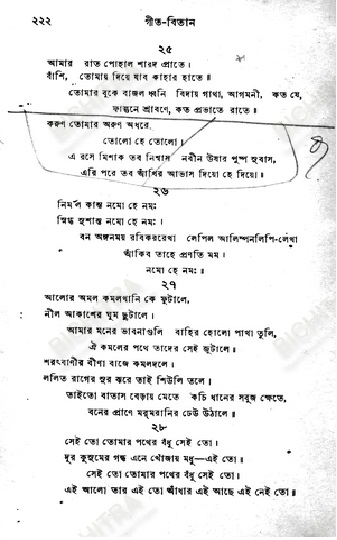 ২২২ গীত-বিতান
২৫
আমার রাত পোহাল শারদ প্রাতে।
বাঁশি, তোমায় দিয়ে যাব কাহার হাতে॥
তোমার বুকে বাজল ধ্বনি বিদায় গাথা, আগমনী, কত যে,
ফাল্গুনে শ্রাবণে, কত প্রভাতে রাতে॥
করুণ তোমার অরুণ অধরে
তোলো হে তোলো।
এ রসে মিশাক তব নিশ্বাস নবীন উষার পুষ্প সুবাস,
এরি পরে তব আঁখির আভাস দিয়ো হে দিয়ো॥
২৬
নির্মল কান্ত নমো হে নমঃ
স্নিগ্ধ সুশান্ত নমো হে নমঃ।
বন অঙ্গনময় রবিকররেখা লেপিল আলিম্পনলিপি-লেখা
আঁকিব তাহে প্রণতি মম।
নমো হে নমঃ॥
২৭
আলোর অমল কমলখানি কে ফুটালে,
নীল আকাশের ঘুম ছুটালে।
আমার মনের ভাবনাগুলি বাহির হোলো পাখা তুলি,
ঐ কমলের পথে তাদের সেই জুটালে।
শরৎবাণীর বীণা বাজে কমলদলে।
ললিত রাগের সুর ঝরে তাই শিউলি তলে।
তাইতো বাতাস বেড়ায় মেতে কচি ধানের সবুজ ক্ষেতে,
বনের প্রাণে মরমরানির ঢেউ উঠালে॥
২৮
সেই তো তোমার পথের বঁধু সেই তো।
দূর কুসুমের গন্ধ এনে খোঁজায় মধু—এই তো।
সেই তো তোমার পথের বঁধু সেই তো।
এই আলো তার এই তো আঁধার এই আছে এই নেই তো॥